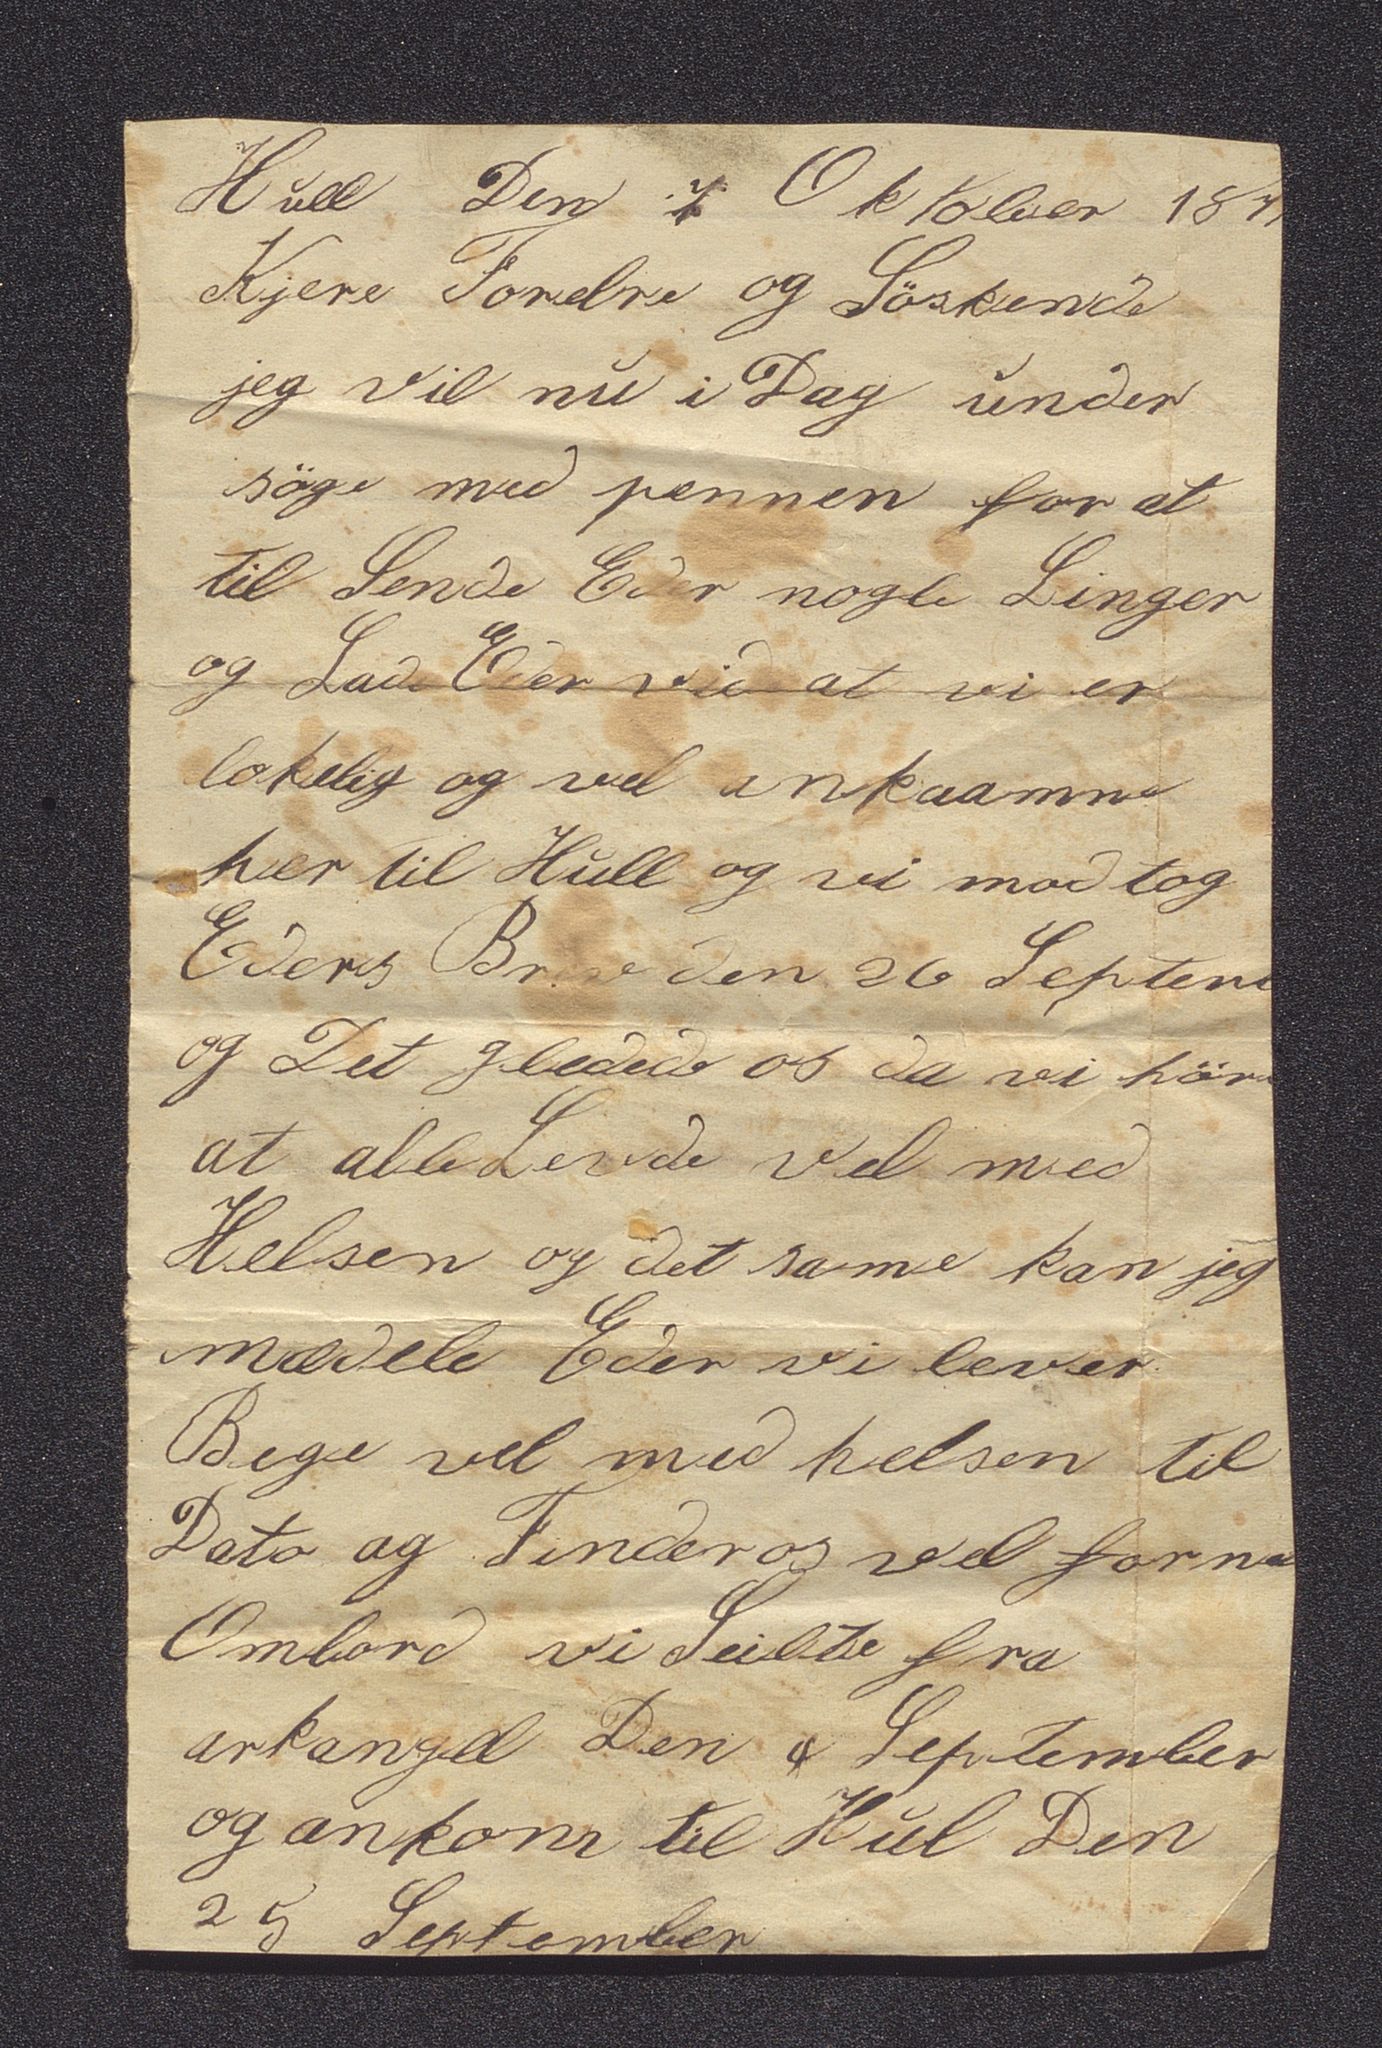 Hull Den 7 Oktober 187
Kjere Forelre og Söskende
jeg vil nu i Dag under
söge med pennen for at
til Sende Eder nogle Linger
og Lade Eder vide at vi er
lokelig og vel ankaamne
her til Hull og vi modtog
Eders Brev den 26 Septem
og Det gledede os da vi höre
at alle Levde vel med
Helsen og det same kan jeg
medele Eder vi lever
Bege vel med helsen til
Dato og Finder os vel forne
Ombord vi Seilte fra
arkangel Den 4 September
og ankom til Hul Den
25 September